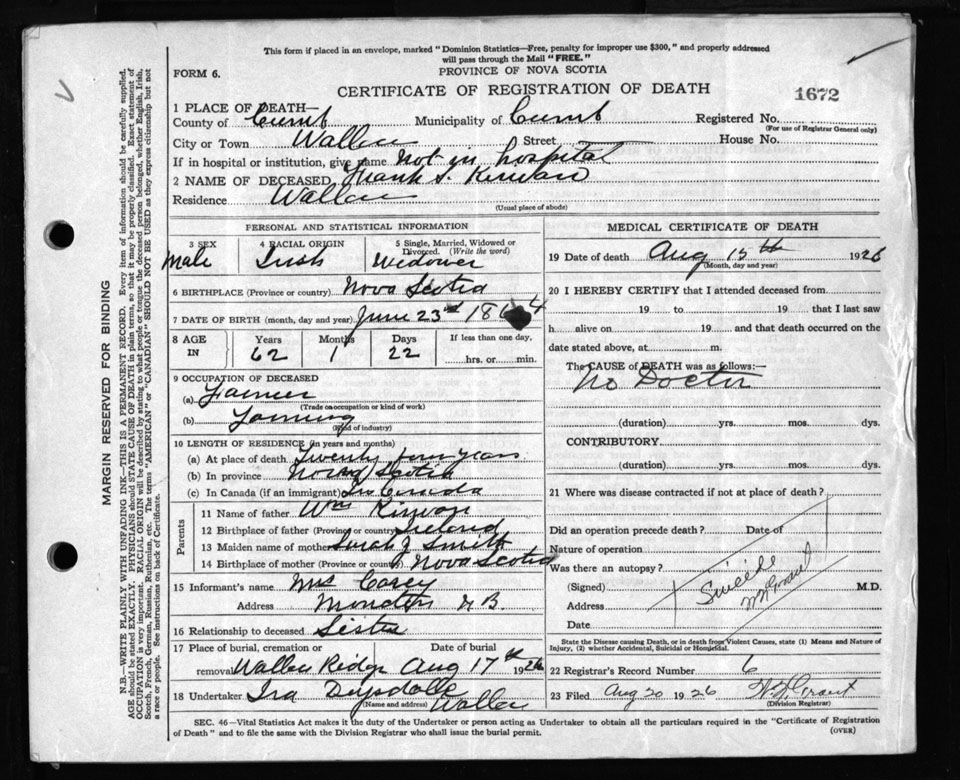 This form if placed in an envelope, marked "Dominion Statistics—Free, penalty for improper use $300," and properly addressed
will pass through the Mail "FREE."
PROVINCE OF NOVA SCOTIA
FORM 6.
CERTIFICATE OF REGISTRATION OF DEATH
1672
1 PLACE OF DEATH—
County of Cumb Municipality of Cumb Registered No.
(For use of Registrar General only)
City or Town Wallace Street House No.
If in hospital or institution, give name Not in hospital
2 NAME OF DECEASED Frank S. Kirwan
Residence Wallace
(Usual place of abode)
PERSONAL AND STATISTICAL INFORMATION
3 SEX 4 RACIAL ORIGIN 5 Single, Married, Widowed or Divorced. (Write the word)
Male Irish Widower
6 BIRTHPLACE (Province or country) Nova Scotia
7 DATE OF BIRTH (month, day and year) June 23rd 1864
8 AGE IN Years Months Days If less than one day,
62 1 22 hrs. or min.
9 OCCUPATION OF DECEASED
(a) Farmer
(Trade or occupation or kind of work)
(b) Farming
(Kind of industry)
10 LENGTH OF RESIDENCE (in years and months)
(a) At place of death Twenty four years
(b) In province Nova Scotia
(c) In Canada (if an immigrant) In Canada
Parents
11 Name of father Wm Kirwan
12 Birthplace of father (Province or country) Ireland
13 Maiden name of mother Sarah J Smith
14 Birthplace of mother (Province or country) Nova Scotia
15 Informant's name Mrs Carey
Address Moncton N B
16 Relationship to deceased Sister
17 Place of burial, cremation or removal Date of burial
Wallace Ridge Aug 17th 1926
18 Undertaker Ira Drysdale
(Name and address) Wallace
MEDICAL CERTIFICATE OF DEATH
19 Date of death Aug 15th 1926
(Month, day and year)
20 I HEREBY CERTIFY that I attended deceased from
19 to 19 that I last saw
h alive on 19 and that death occurred on the
date stated above, at m.
The CAUSE of DEATH was as follows:—
No Doctor
(duration) yrs. mos. dys.
CONTRIBUTORY
(duration) yrs. mos. dys.
21 Where was disease contracted if not at place of death?
Did an operation precede death? Date of
Nature of operation
Was there an autopsy?
(Signed) M.D.
Address
Date
Suicide
W N Grant
State the Disease causing Death, or in death from Violent Causes, state (1) Means and Nature of
Injury, (2) whether Accidental, Suicidal or Homicidal.
22 Registrar's Record Number 6
23 Filed Aug 20 1926 W. N. Grant
(Division Registrar)
SEC. 46—Vital Statistics Act makes it the duty of the Undertaker or person acting as Undertaker to obtain all the particulars required in the "Certificate of Registration
of Death" and to file the same with the Division Registrar who shall issue the burial permit.
(OVER)
MARGIN RESERVED FOR BINDING
N.B.—WRITE PLAINLY WITH UNFADING INK—THIS IS A PERMANENT RECORD. Every item of information should be carefully supplied.
AGE should be stated EXACTLY. PHYSICIANS should STATE CAUSE OF DEATH in plain terms, so that it may be properly classified. Exact statement of
OCCUPATION is very important. RACIAL ORIGIN will be described by stating to what people or tongue the deceased person belonged, whether English, Irish,
Scotch, French, German, Russian, Ruthenian, etc. The terms "AMERICAN" or "CANADIAN" SHOULD NOT BE USED as they express citizenship but not
a race or people. See instructions on back of Certificate.